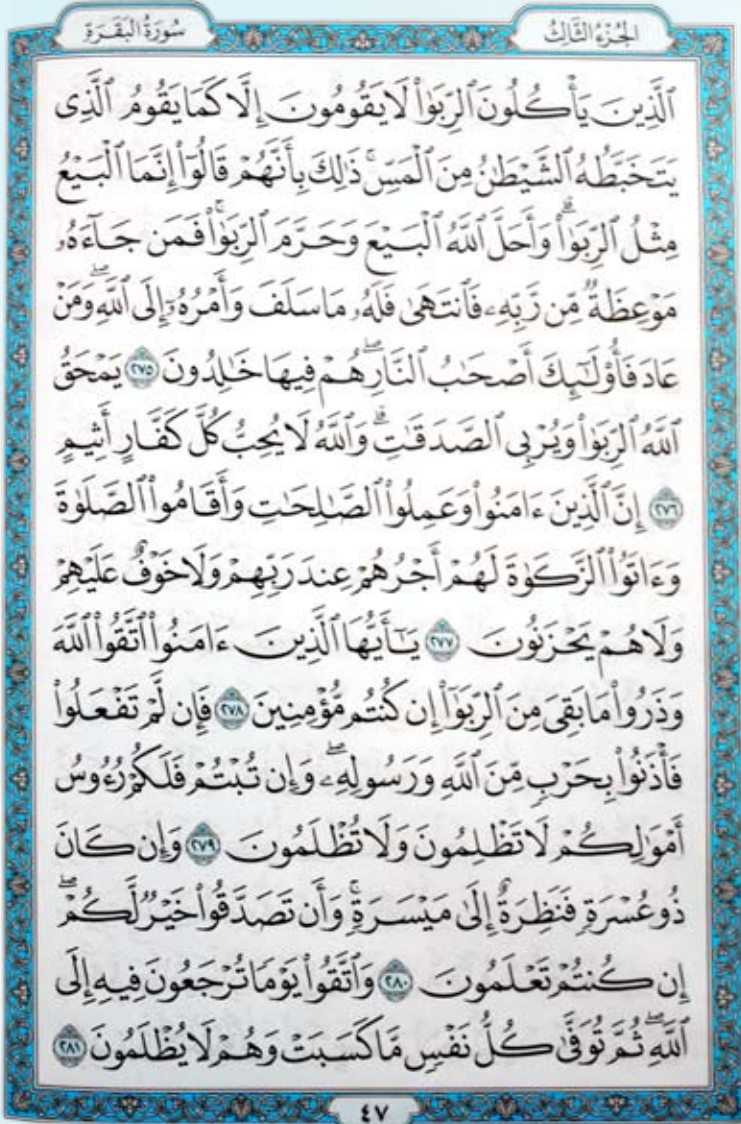 الجُزْءُ الثَّالِثُ
سُورَةُ البَقَرَةِ
ٱلَّذِينَ يَأْكُلُونَ ٱلرِّبَوٰا۟ لَا يَقُومُونَ إِلَّا كَمَا يَقُومُ ٱلَّذِى
يَتَخَبَّطُهُ ٱلشَّيْطَٰنُ مِنَ ٱلْمَسِّۚ ذَٰلِكَ بِأَنَّهُمْ قَالُوٓا۟ إِنَّمَا ٱلْبَيْعُ
مِثْلُ ٱلرِّبَوٰا۟ۗ وَأَحَلَّ ٱللَّهُ ٱلْبَيْعَ وَحَرَّمَ ٱلرِّبَوٰا۟ۚ فَمَن جَآءَهُۥ
مَوْعِظَةٌ مِّن رَّبِّهِۦ فَٱنتَهَىٰ فَلَهُۥ مَا سَلَفَ وَأَمْرُهُۥٓ إِلَى ٱللَّهِۖ وَمَنْ
عَادَ فَأُو۟لَٰٓئِكَ أَصْحَٰبُ ٱلنَّارِۖ هُمْ فِيهَا خَٰلِدُونَ ٢٧٥ يَمْحَقُ
ٱللَّهُ ٱلرِّبَوٰا۟ وَيُرْبِى ٱلصَّدَقَٰتِۗ وَٱللَّهُ لَا يُحِبُّ كُلَّ كَفَّارٍ أَثِيمٍ
٢٧٦ إِنَّ ٱلَّذِينَ ءَامَنُوا۟ وَعَمِلُوا۟ ٱلصَّٰلِحَٰتِ وَأَقَامُوا۟ ٱلصَّلَوٰةَ
وَءَاتَوُا۟ ٱلزَّكَوٰةَ لَهُمْ أَجْرُهُمْ عِندَ رَبِّهِمْ وَلَا خَوْفٌ عَلَيْهِمْ
وَلَا هُمْ يَحْزَنُونَ ٢٧٧ يَٰٓأَيُّهَا ٱلَّذِينَ ءَامَنُوا۟ ٱتَّقُوا۟ ٱللَّهَ
وَذَرُوا۟ مَا بَقِىَ مِنَ ٱلرِّبَوٰٓا۟ إِن كُنتُم مُّؤْمِنِينَ ٢٧٨ فَإِن لَّمْ تَفْعَلُوا۟
فَأْذَنُوا۟ بِحَرْبٍ مِّنَ ٱللَّهِ وَرَسُولِهِۦۖ وَإِن تُبْتُمْ فَلَكُمْ رُءُوسُ
أَمْوَٰلِكُمْ لَا تَظْلِمُونَ وَلَا تُظْلَمُونَ ٢٧٩ وَإِن كَانَ
ذُو عُسْرَةٍ فَنَظِرَةٌ إِلَىٰ مَيْسَرَةٍۚ وَأَن تَصَدَّقُوا۟ خَيْرٌ لَّكُمْۖ
إِن كُنتُمْ تَعْلَمُونَ ٢٨٠ وَٱتَّقُوا۟ يَوْمًا تُرْجَعُونَ فِيهِ إِلَى
ٱللَّهِۖ ثُمَّ تُوَفَّىٰ كُلُّ نَفْسٍ مَّا كَسَبَتْ وَهُمْ لَا يُظْلَمُونَ ٢٨١
٤٧